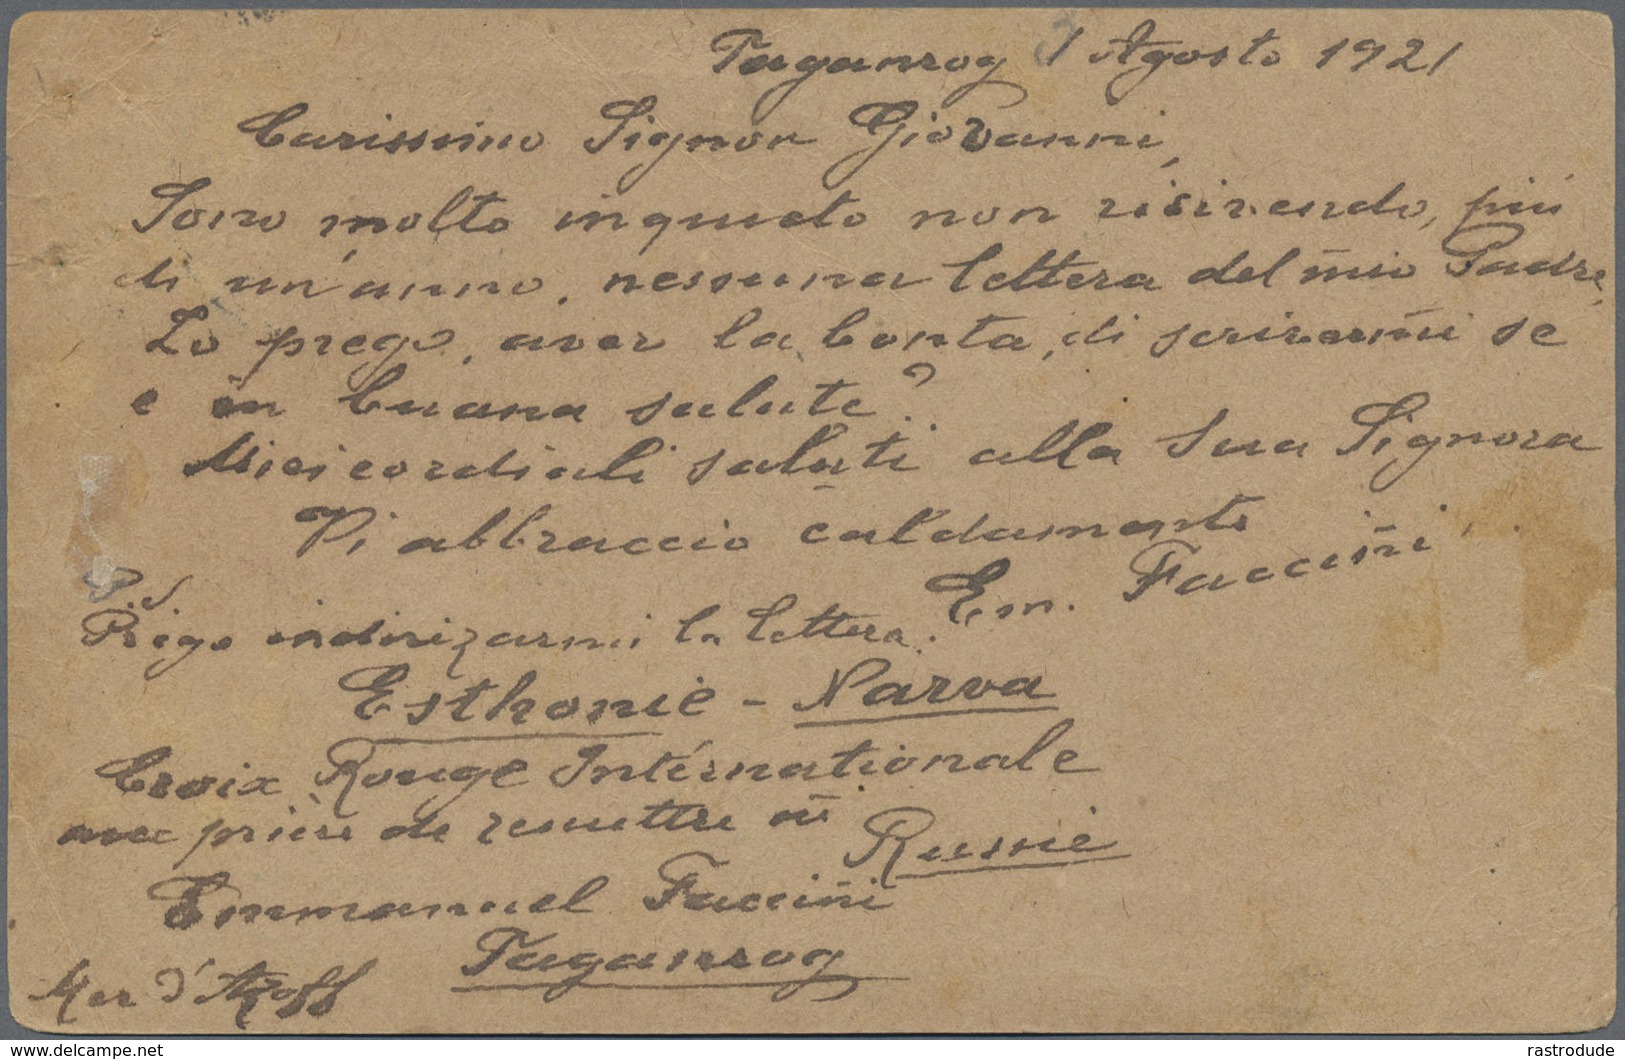 Taganrog 1 Agosto 1921
Carissimo Signor Giovanni,
Sono molto inquieto non ricivendo, più
di un'anno, nessuna lettera del mio Padre,
Lo prego, aver la bonta, di scrivermi se
e in buona salute?
Miei cordiali saluti alla Sua Signora
Vi abbraccio caldamente
Em. Faccini
P.S
Prego indirizarmi la lettera:
Esthonie - Narva
Croix Rouge Internationale
avec prière de remettre en
Russie
Emmanuel Faccini
Taganrog
Mer d'Azoff
www.delcampe.net
rastrodude